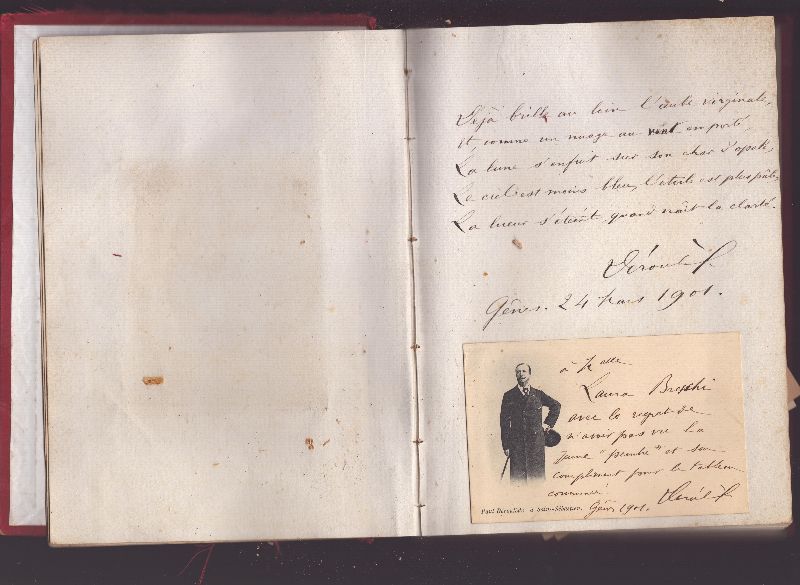 Déjà brille au loin l'aube virginale,
Et, comme un nuage au vent emporté,
La lune s'enfuit sur son char d'opale,
Le ciel est moins bleu, l'étoile est plus pâle,
La lueur s'éteint quand naît la clarté.
Gênes. 24 Mars 1901.
à Mlle
Laura
avec le regret de
n'avoir pas vu la
jeune "peintre" et son
compliment pour le tableau
commencé
Gênes 1901.
Paul Déroulède à Saint-Sébastien.